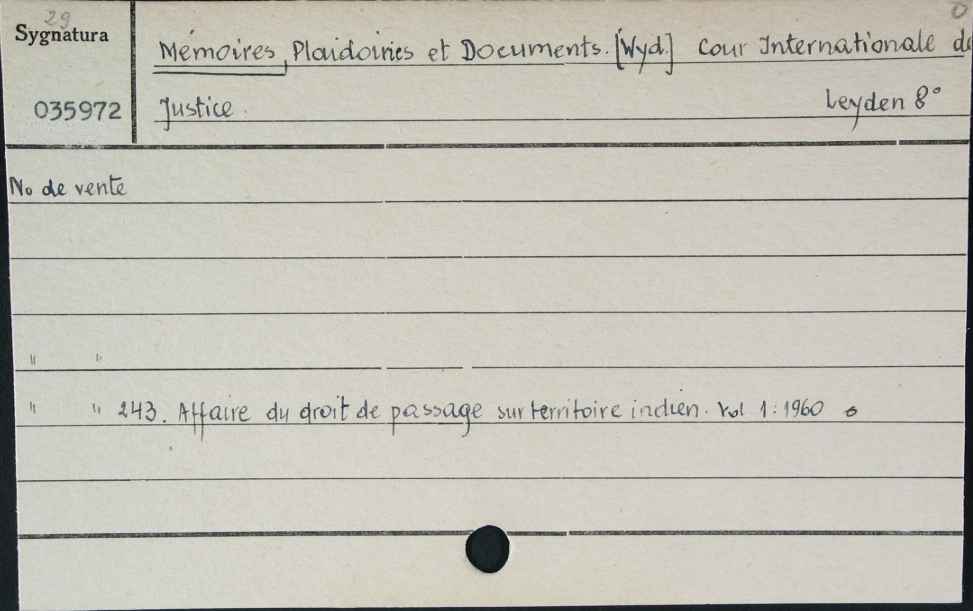 29
Sygnatura
0
Mémoires, Plaidoiries et Documents. [Wyd.] Cour Internationale de
035972
Justice. Leyden 8°
No de vente
" "
" " 243. Affaire du droit de passage sur territoire indien. Vol 1: 1960